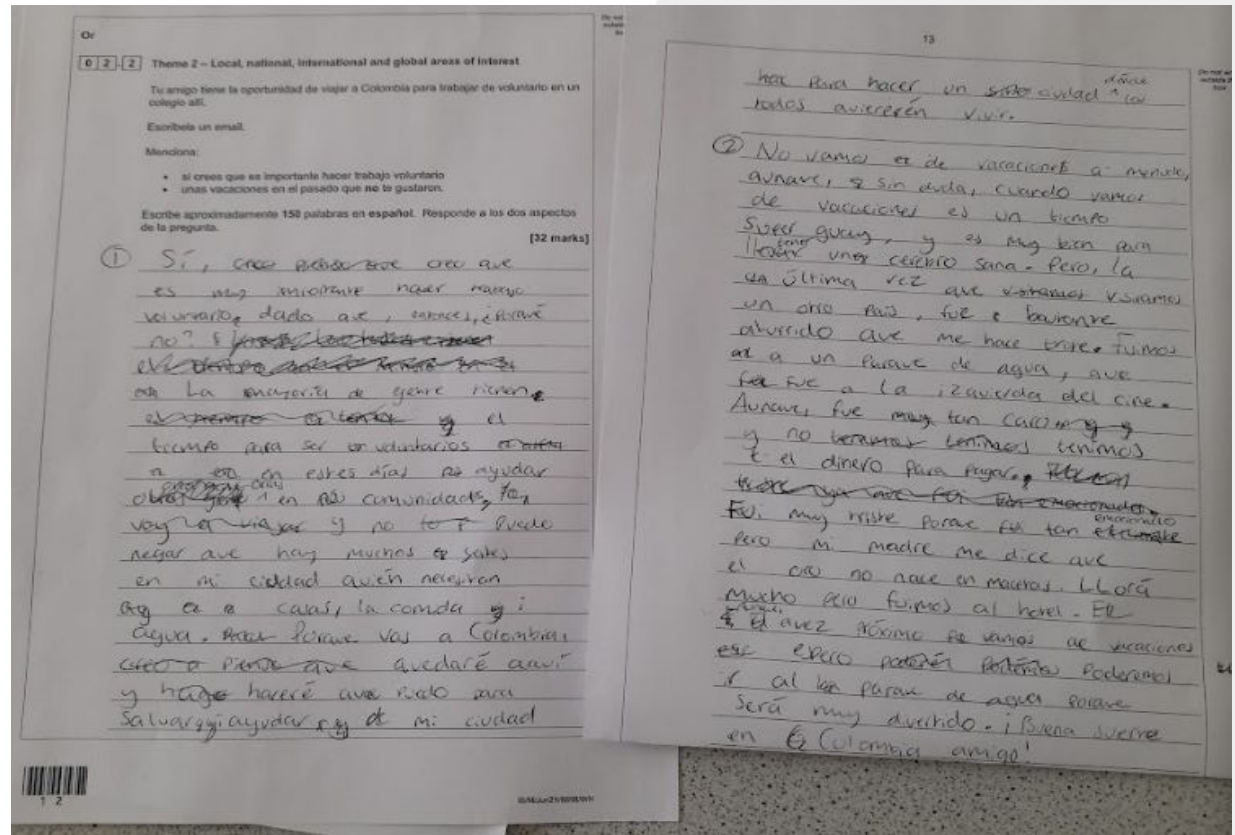 Or
0 2 . 2 Theme 2 – Local, national, international and global areas of interest
Tu amigo tiene la oportunidad de viajar a Colombia para trabajar de voluntario en un
colegio allí.
Escríbele un email.
Menciona:
• si crees que es importante hacer trabajo voluntario
• unas vacaciones en el pasado que no te gustaron.
Escribe aproximadamente 150 palabras en español. Responde a los dos aspectos
de la pregunta.
[32 marks]
① Sí, creo que
es muy importante hacer trabajo
voluntario, dado que, entonces, ¿Porqué
no?
La mayoría de gente tienen
el
tiempo para ser voluntarios
en estes días ayudar
en comunidades,
y no puedo
negar que hay muchos
en mi ciudad quién necesitan
casas, la comida i
agua. Porque vas a Colombia,
quedaré aquí
y haceré que puedo para
salvar i ayudar mi ciudad
12
13
para hacer un ciudad dónde
todos vivir.
② No vamos de vacaciones a menudo,
aunque, sin duda, cuando vamos
de vacaciones es un tiempo
super guay, y es muy bien para
tener cerebro sana. Pero, la
última vez que visitamos
un otro país, fue
aburrido que me hace triste. Fuimos
a un parque de agua, que
fue a la izquierda del cine.
Aunque, fue tan caro
y no tenimos
el dinero para pagar.
Fui muy triste porque tan emocionado
pero mi madre me dice que
el no nace en maceros. LLorá
mucho pero fuimos al hotel.
próximo vamos de vacaciones
espero poderemos
ir al parque de agua porque
será muy divertido. ¡Buena suerte
en Colombia amigo!